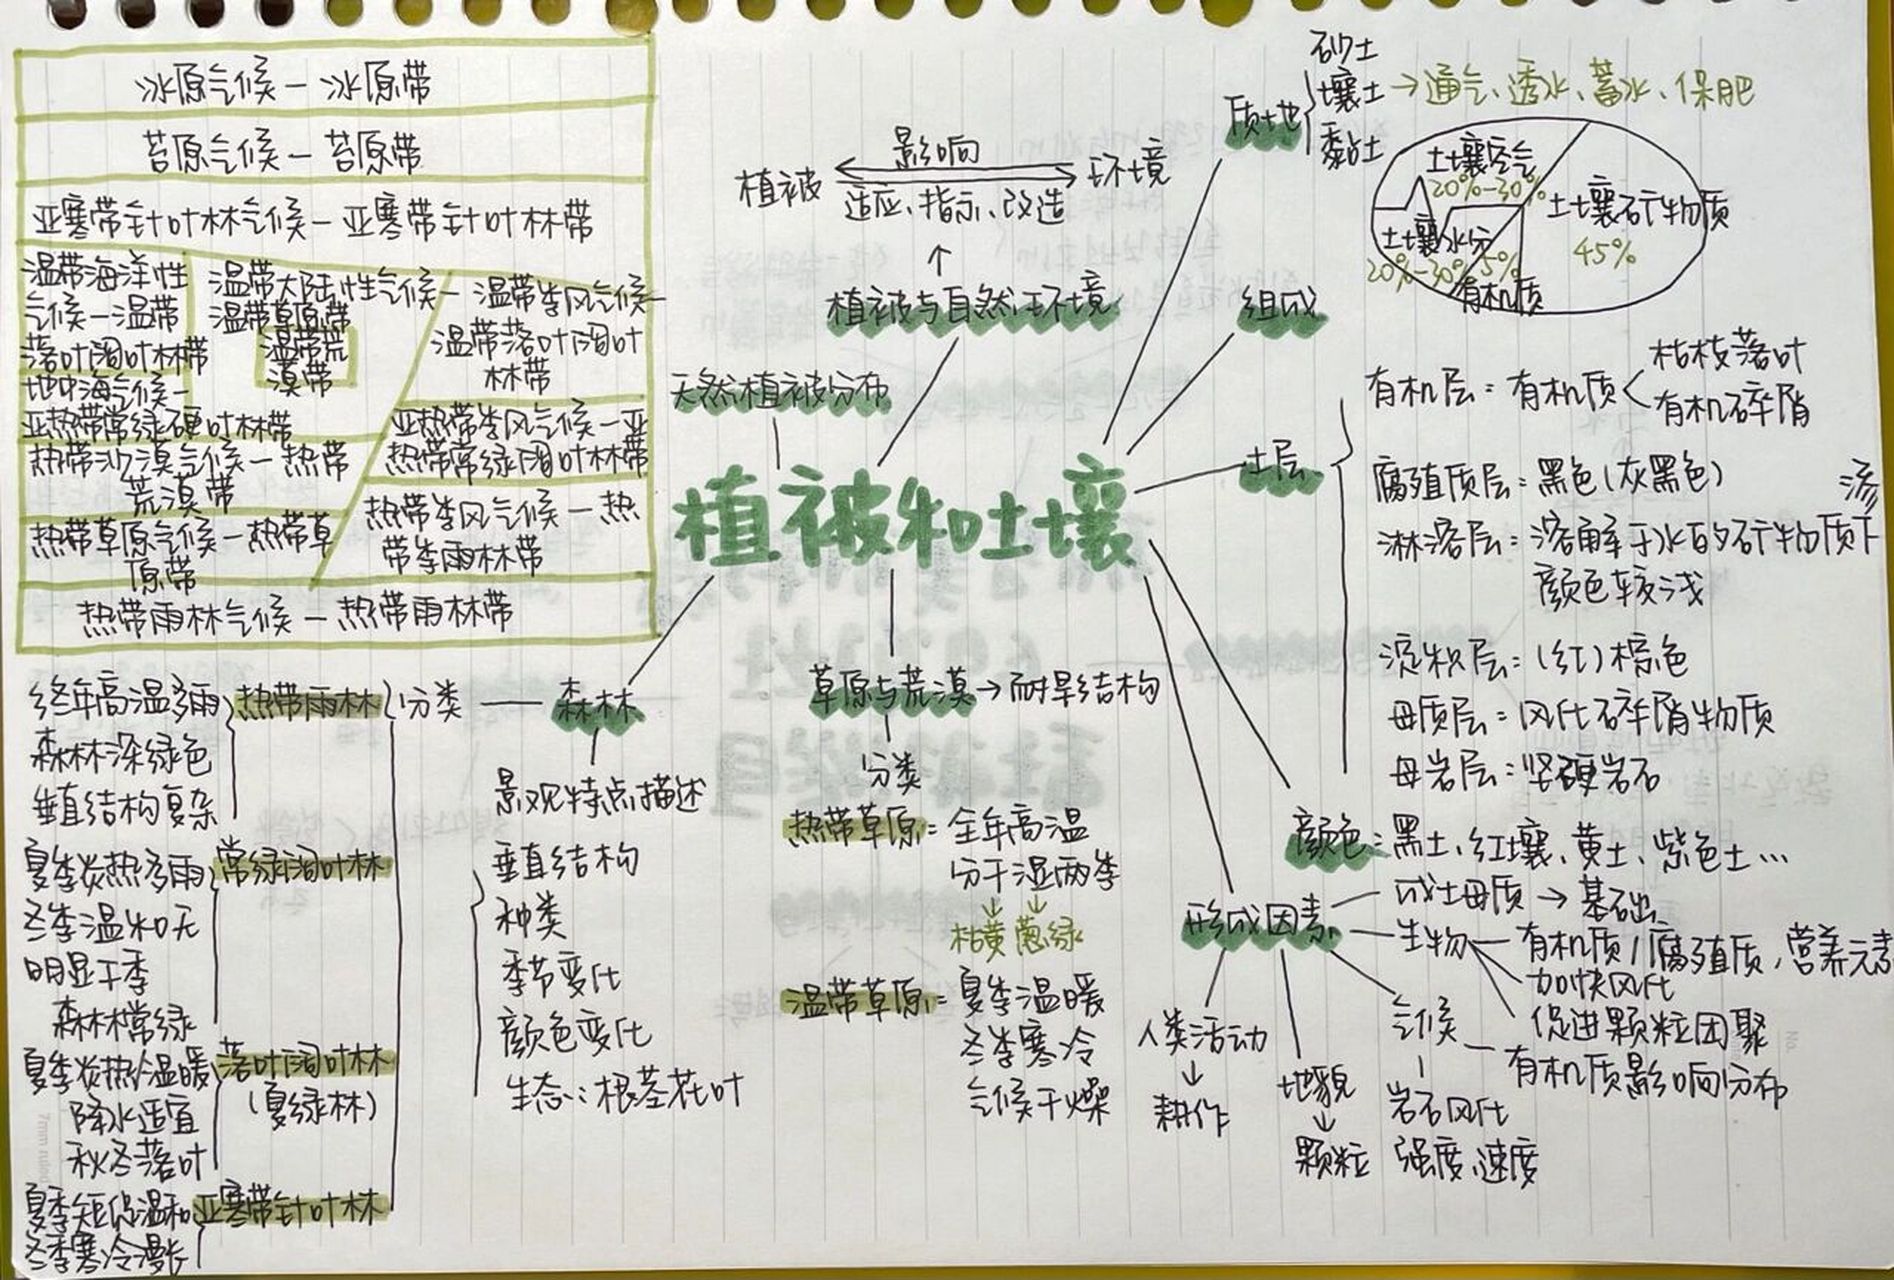 冰原气候－冰原带
苔原气候－苔原带
亚寒带针叶林气候－亚寒带针叶林带
温带海洋性
气候－温带
落叶阔叶林带
地中海气候－
亚热带常绿硬叶林带
温带大陆性气候－
温带草原带
温带荒
漠带
温带季风气候－
温带落叶阔叶
林带
亚热带季风气候－亚
热带常绿阔叶林带
热带沙漠气候－热带
荒漠带
热带草原气候－热带草
原带
热带季风气候－热
带季雨林带
热带雨林气候－热带雨林带
植被和土壤
天然植被分布
植被与自然环境
↑
植被 影响 环境
适应、指示、改造
质地
砂土
壤土→通气、透水、蓄水、保肥
黏土
组成
土壤空气
20%-30%
土壤矿物质
45%
土壤水分
20%-30%
5%
有机质
土层
有机层：有机质
枯枝落叶
有机碎屑
腐殖质层：黑色(灰黑色)
淋溶层：溶解于水的矿物质下渗
颜色较浅
淀积层：(红)棕色
母质层：风化碎屑物质
母岩层：坚硬岩石
颜色：黑土、红壤、黄土、紫色土…
形成因素
成土母质→基础
生物
有机质/腐殖质，营养元素
加快风化
促进颗粒团聚
气候
有机质影响分布
岩石风化
强度、速度
地貌
↓
颗粒
人类活动
↓
耕作
草原与荒漠→耐旱结构
分类
热带草原：全年高温
分干湿两季
↓ ↓
枯黄 葱绿
温带草原：夏季温暖
冬季寒冷
气候干燥
森林
景观特点描述
垂直结构
种类
季节变化
颜色变化
生态：根茎花叶
分类
热带雨林
终年高温多雨
森林深绿色
垂直结构复杂
常绿阔叶林
夏季炎热多雨
冬季温和无
明显干季
森林常绿
落叶阔叶林
(夏绿林)
夏季炎热/温暖
降水适宜
秋冬落叶
亚寒带针叶林
夏季短促温和
冬季寒冷漫长